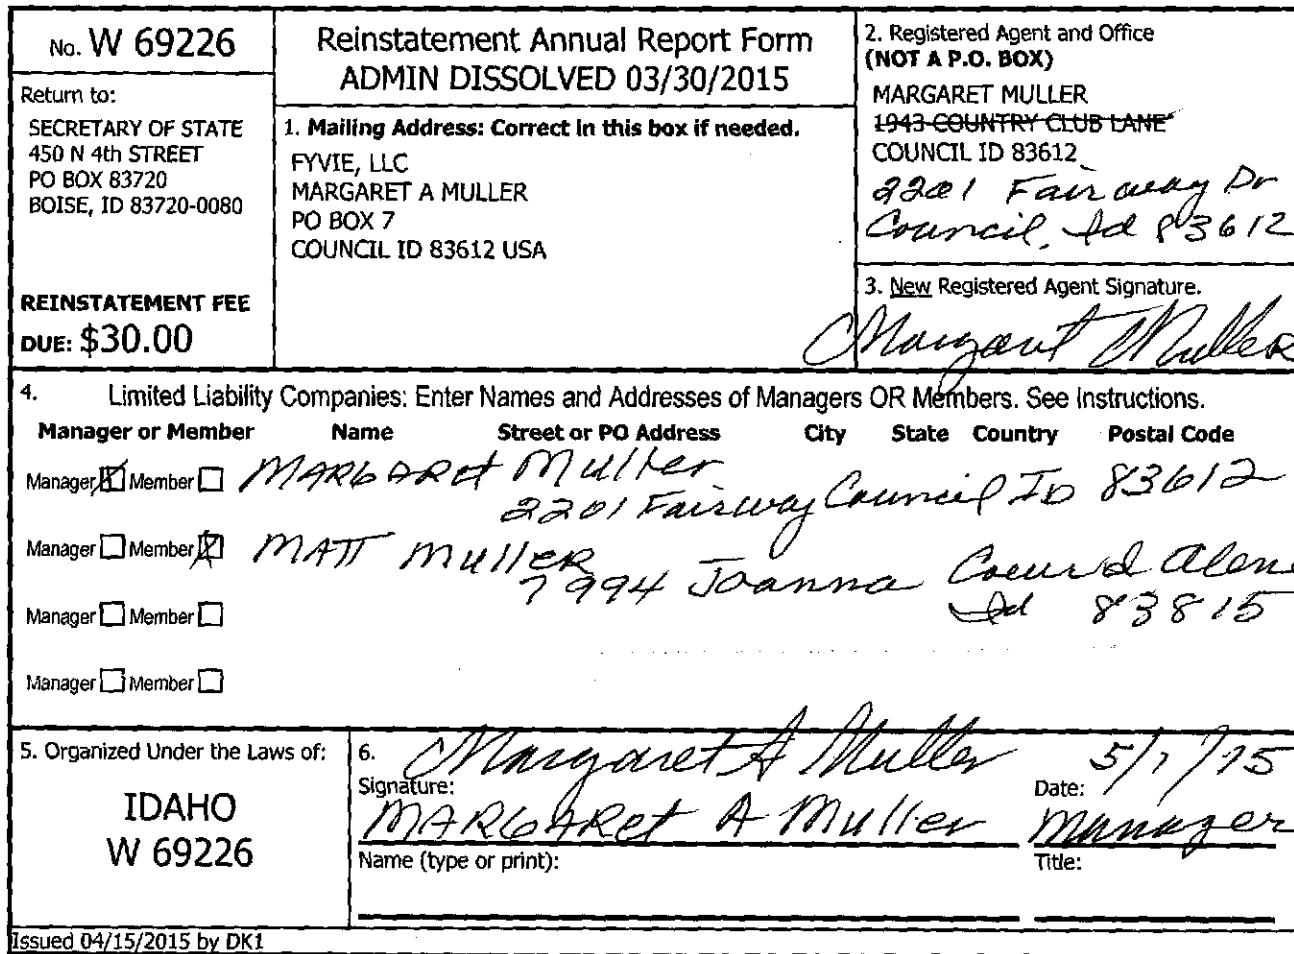 No. W 69226
Return to:
SECRETARY OF STATE
450 N 4th STREET
PO BOX 83720
BOISE, ID 83720-0080
REINSTATEMENT FEE
DUE: $30.00
Reinstatement Annual Report Form
ADMIN DISSOLVED 03/30/2015
1. Mailing Address: Correct in this box if needed.
FYVIE, LLC
MARGARET A MULLER
PO BOX 7
COUNCIL ID 83612 USA
2. Registered Agent and Office
(NOT A P.O. BOX)
MARGARET MULLER
1943 COUNTRY CLUB LANE
COUNCIL ID 83612
2201 Fairway Dr
Council, Id 83612
3. New Registered Agent Signature.
Margaret Muller
4. Limited Liability Companies: Enter Names and Addresses of Managers OR Members. See Instructions.
Manager or Member Name Street or PO Address City State Country Postal Code
Manager Member MARGARet Muller
2201 Fairway Council ID 83612
Manager Member MATT Muller
7994 Joanna Coeur d Alene
Id 83815
Manager Member
Manager Member
5. Organized Under the Laws of:
IDAHO
W 69226
6. Margaret A Muller 5/1/15
Signature: Date:
MARGARet A Muller Manager
Name (type or print): Title:
Issued 04/15/2015 by DK1